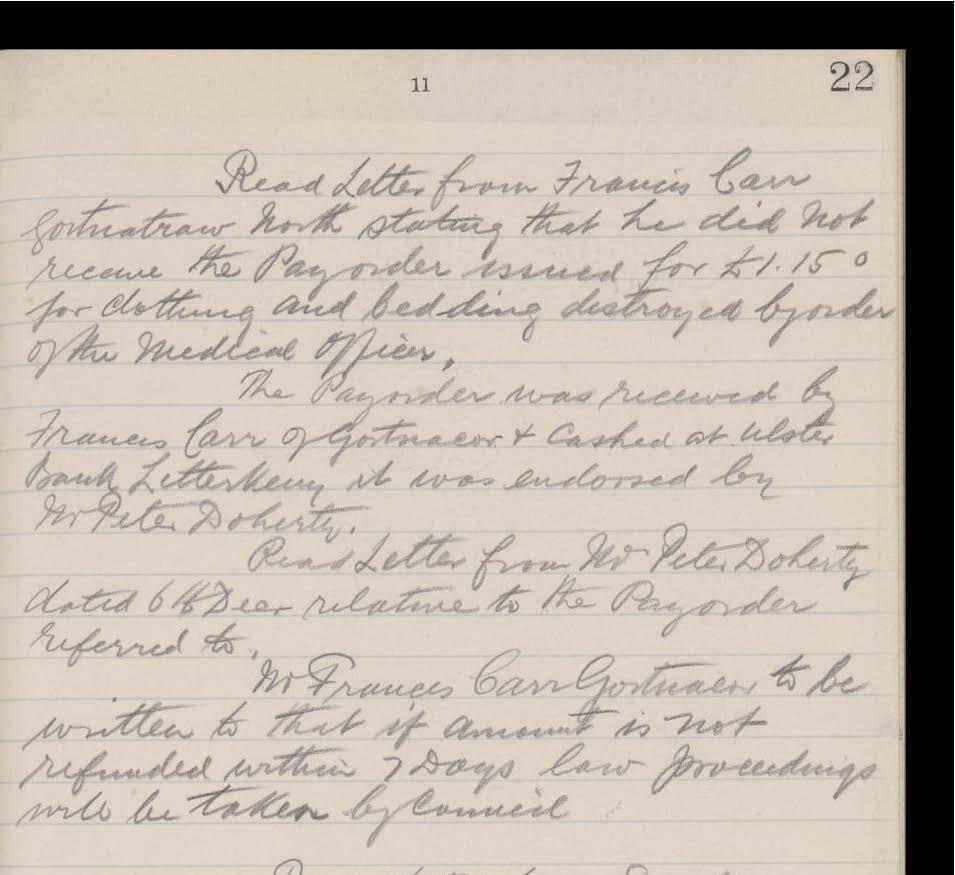 11
22
Read Letter from Francis Carr
Gortnatraw North stating that he did not
receive the Payorder issued for £1.15 0
for clothing and bedding destroyed by order
of the Medical Officer.
The Payorder was received by
Francis Carr of Gortnacor & Cashed at Ulster
Bank Letterkenny it was endorsed by
Mr Peter Doherty.
Read Letter from Mr Peter Doherty
dated 6th Decr relative to the Payorder
referred to.
Mr Frances Carr Gortnacor to be
written to that if amount is not
refunded within 7 Days law proceedings
will be taken by Council